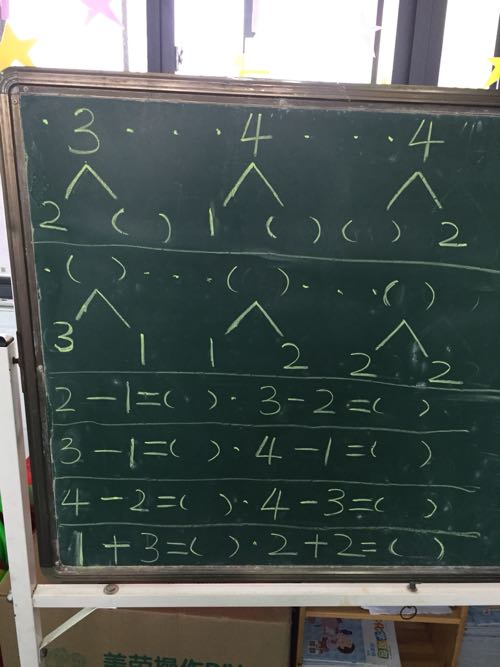 · 3 · · · 4 · · · 4
2 ( ) 1 ( ) ( ) 2
· ( ) · · · ( ) · · · ( )
3 1 1 2 2 2
2-1=( ) · 3-2=( )
3-1=( ) · 4-1=( )
4-2=( ) · 4-3=( )
1+3=( ) · 2+2=( )